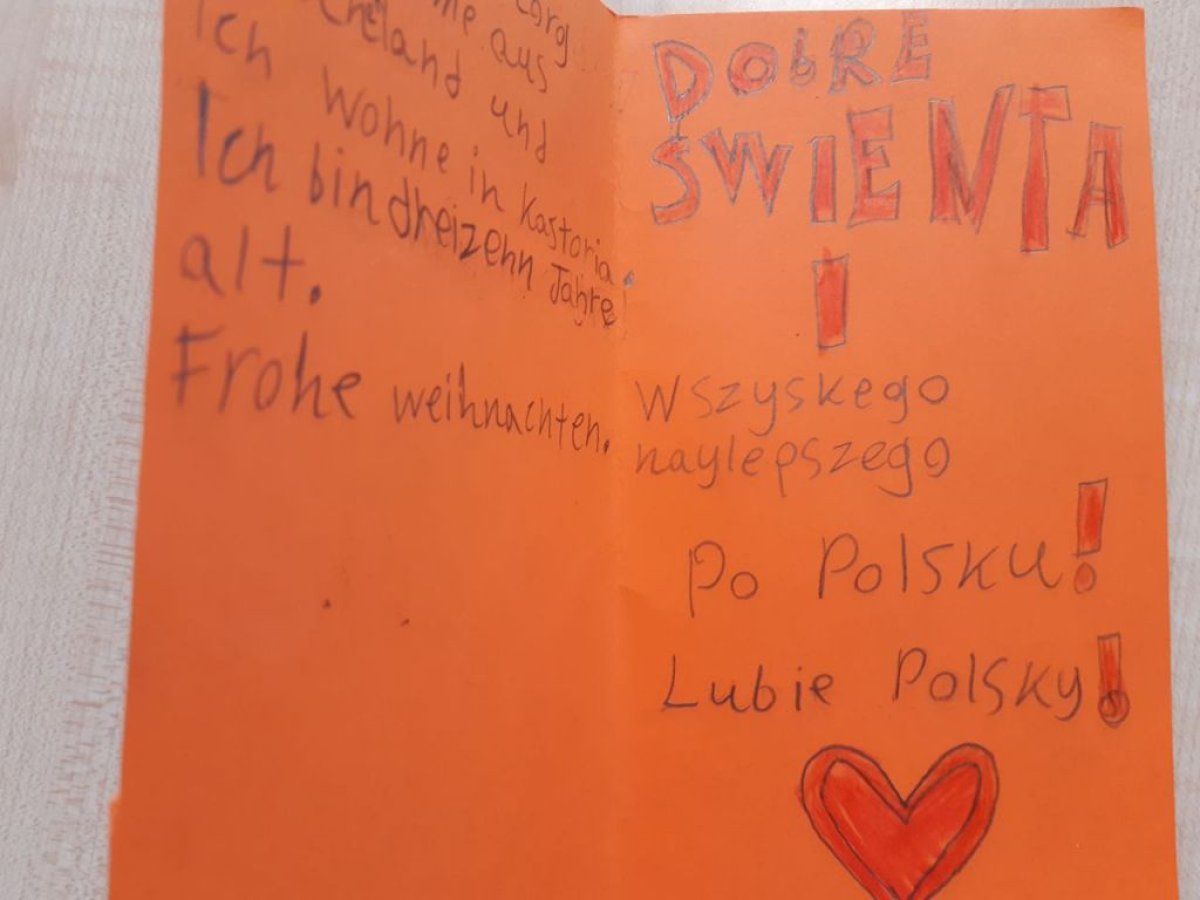 me aus
cheland und
Ich wohne in kastoria.
Ich bin dreizehn Jahre
alt.
Frohe weihnachten.
DObRE
ŚWIENTA
I
Wszyskego
naylepszego
Po Polsku!
Lubie Polsky!